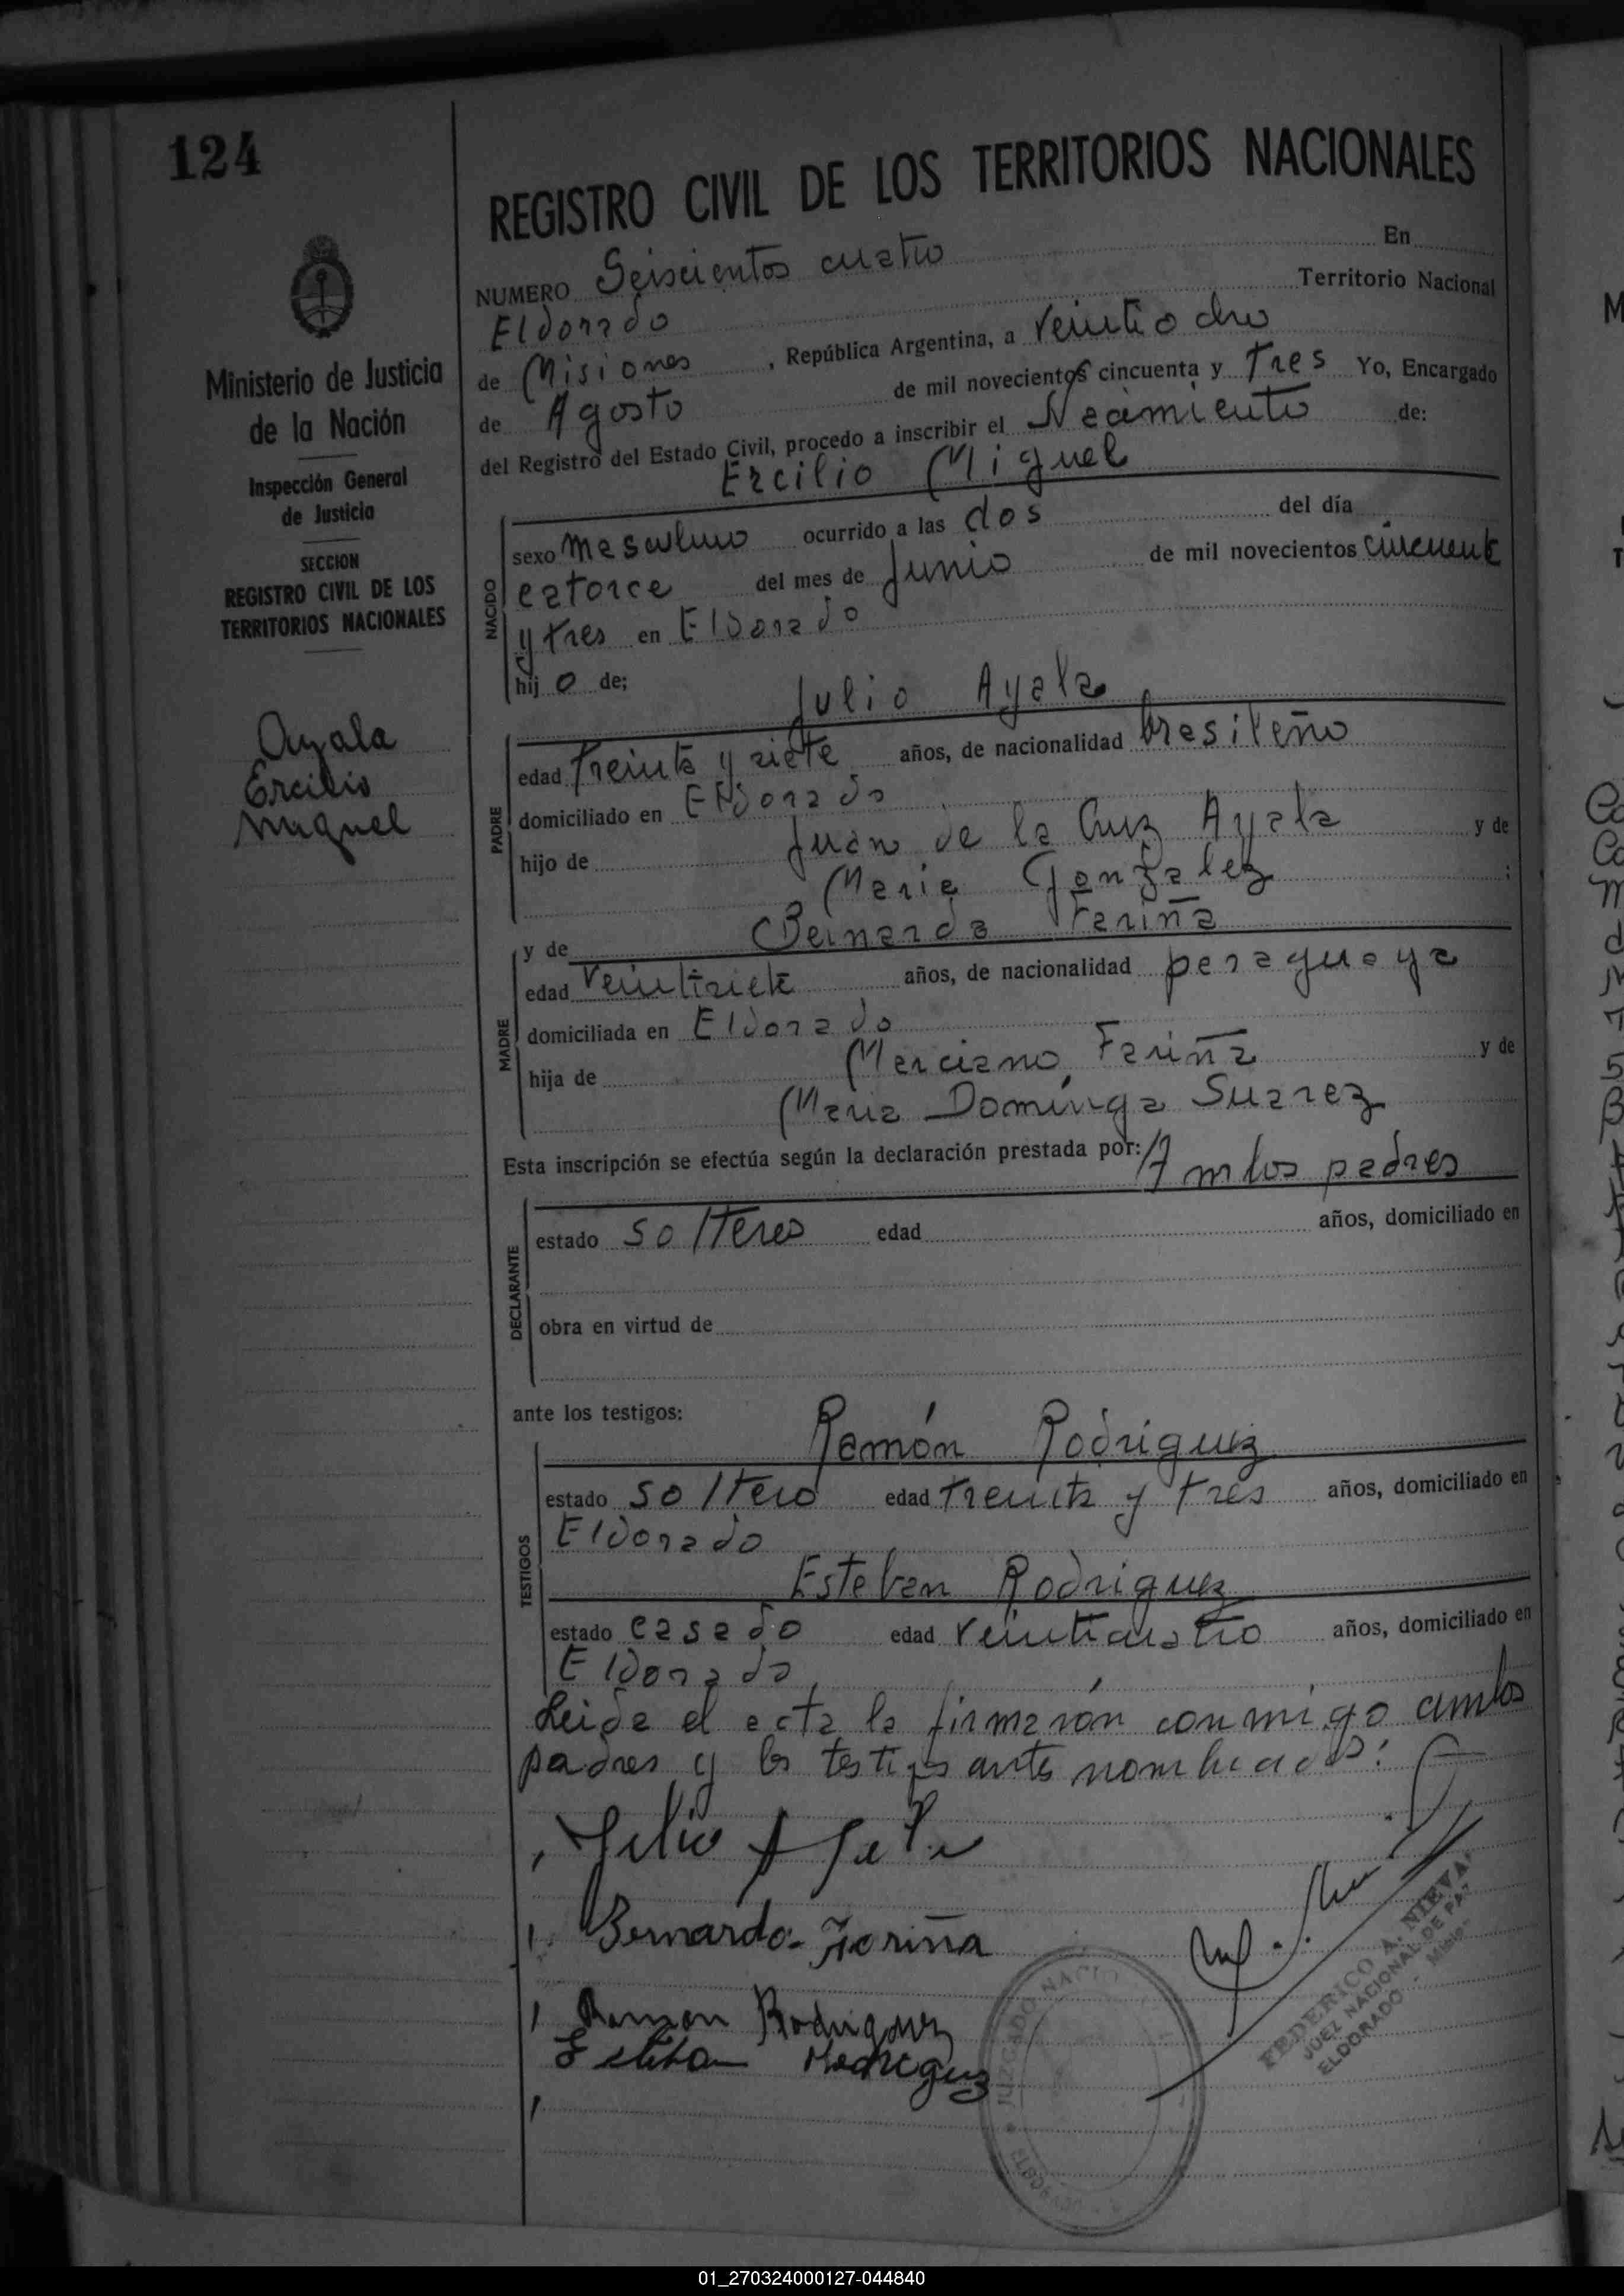 124
REGISTRO CIVIL DE LOS TERRITORIOS NACIONALES
Ministerio de Justicia
de la Nación
Inspección General
de Justicia
SECCION
REGISTRO CIVIL DE LOS
TERRITORIOS NACIONALES
Ayala
Ercilio
Miguel
NUMERO Seiscientos cuatro En
Eldorado Territorio Nacional
de Misiones, República Argentina, a veintiocho
de Agosto de mil novecientos cincuenta y tres Yo, Encargado
del Registro del Estado Civil, procedo a inscribir el Nacimiento de:
Ercilio Miguel
NACIDO
sexo masculino ocurrido a las dos del día
catorce del mes de Junio de mil novecientos cincuenta
y tres en Eldorado
hijo de;
Julio Ayala
PADRE
edad treinta y siete años, de nacionalidad brasileño
domiciliado en Eldorado
hijo de Juan de la Cruz Ayala y de
Maria Gonzalez ;
y de Bernarda Fariña
MADRE
edad veintisiete años, de nacionalidad paraguaya
domiciliada en Eldorado
hija de Marciano Fariña y de
Maria Dominga Suarez
Esta inscripción se efectúa según la declaración prestada por: Ambos padres
DECLARANTE
estado solteros edad años, domiciliado en
obra en virtud de
ante los testigos:
Ramón Rodriguez
TESTIGOS
estado soltero edad treinta y tres años, domiciliado en
Eldorado
Esteban Rodriguez
estado casado edad veinticuatro años, domiciliado en
Eldorado
Leida el acta la firmarón conmigo ambos
padres y los testigos antes nombrados:
Julio Ayala
Bernarda Fariña
Ramon Rodriguez
Esteban Rodriguez
JUZGADO NACIO
ELDORADO
FEDERICO A. NIEVA
JUEZ NACIONAL DE PAZ
ELDORADO - Misio
01_270324000127-044840